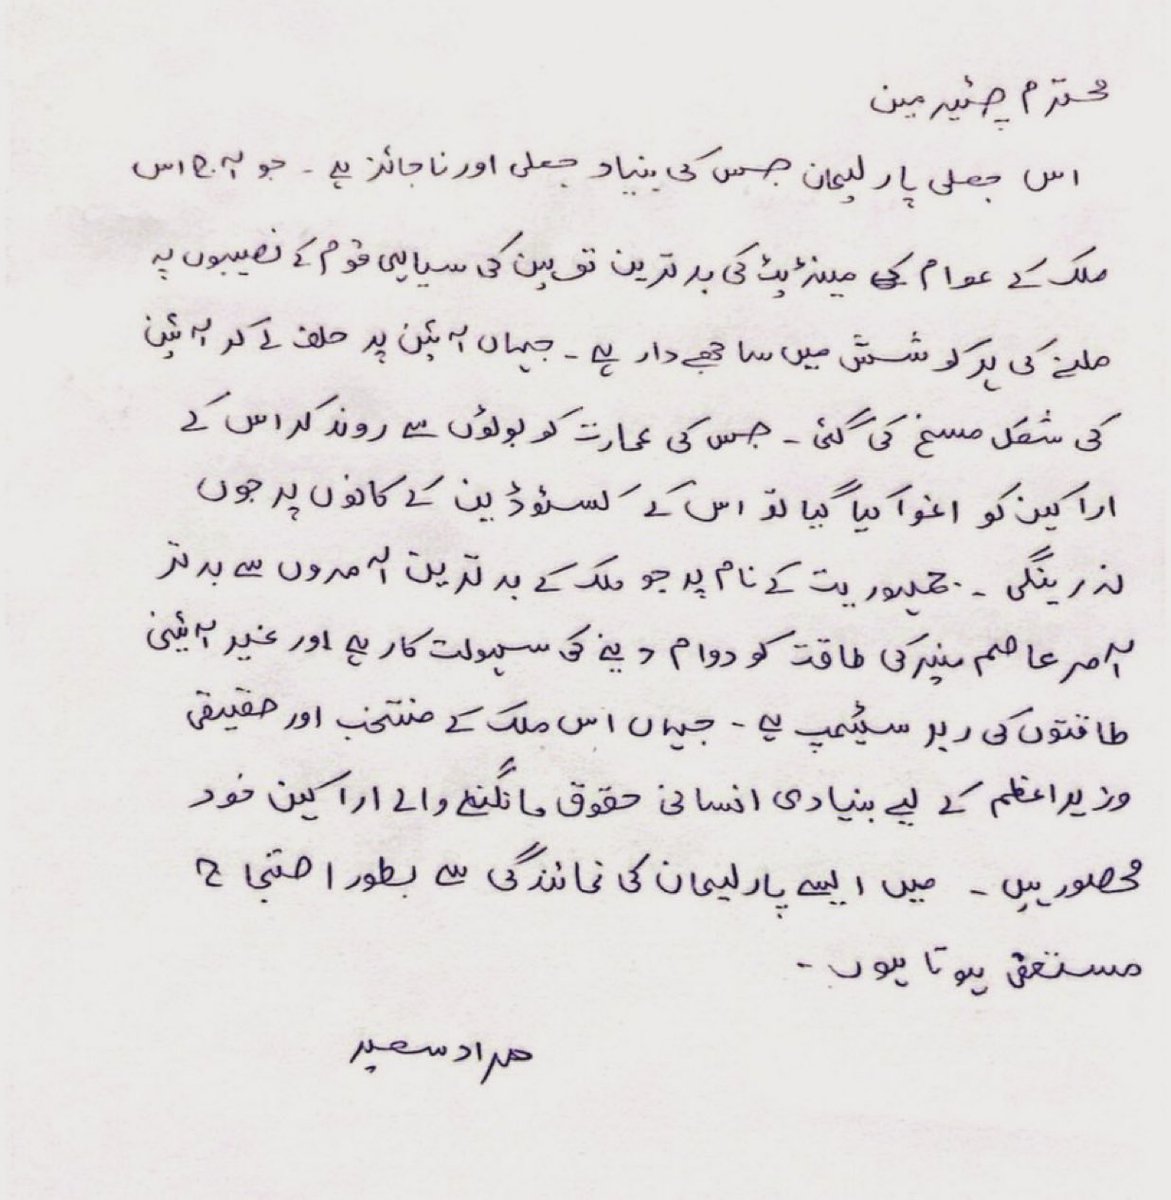 محترم چئیر مین
اس جعلی پارلیمان جس کی بنیاد جعلی اور ناجائز ہے ۔ جو آج اس
ملک کے عوام کے مینڈیٹ کی بدترین توہین کی سیاہی قوم کے نصیبوں پہ
ملنے کی ہر کوشش میں ساجھے دار ہے ۔ جہاں آئین پر حلف لے کر آئین
کی شکل مسخ کی گئی ۔ جس کی عمارت کو بوٹوں سے روند کر اس کے
اراکین کو اغوا کیا گیا تو اس کے کسٹوڈین کے کانوں پر جوں
نہ رینگی ۔ جمہوریت کے نام پر جو ملک کے بدترین آمروں سے بدتر
آمر عاصم منیر کی طاقت کو دوام دینے کی سہولت کار ہے اور غیر آئینی
طاقتوں کی ربر سٹیمپ ہے ۔ جہاں اس ملک کے منتخب اور حقیقی
وزیراعظم کے لیے بنیادی انسانی حقوق مانگنے والے اراکین خود
محصور ہیں ۔ میں ایسے پارلیمان کی نمائندگی سے بطور احتجاج
مستعفی ہوتا ہوں ۔
مراد سعید